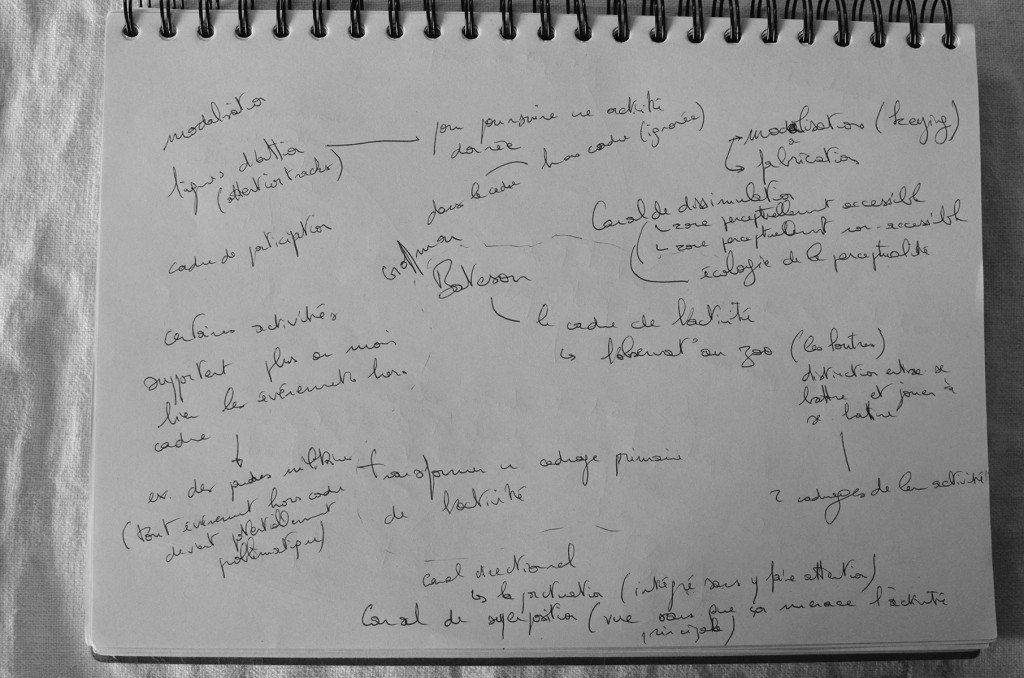 modalisation
lignes d'att°ion
(attention tracks)
pour poursuivre une activité
donnée
dans le cadre
hors cadre (ignorée)
→ modalisation (keying)
↳ fabrication
cadre de participation
Canal de dissimulation
↳ zone perceptuellement accessibl
↳ zone perceptuellement non-accessibl
écologie de la perceptualité
Goffman
Bateson
le cadre de l'activité
↳ l'observat° au zoo (les loutres)
distinction entre se
battre et jouer à
se battre
2 cadrages de leur activité
certaines activités
supportent plus ou moins
bien les événements hors
cadre
ex. des parades militaires
(tout événement hors cadre
devient potentiellement
problématique)
transformer un cadrage primaire
de l'activité
canal directionnel
↳ la ponctuation (intégré sans y faire attention)
Canal de superposition (vue sans que ça menace l'activité
principale)